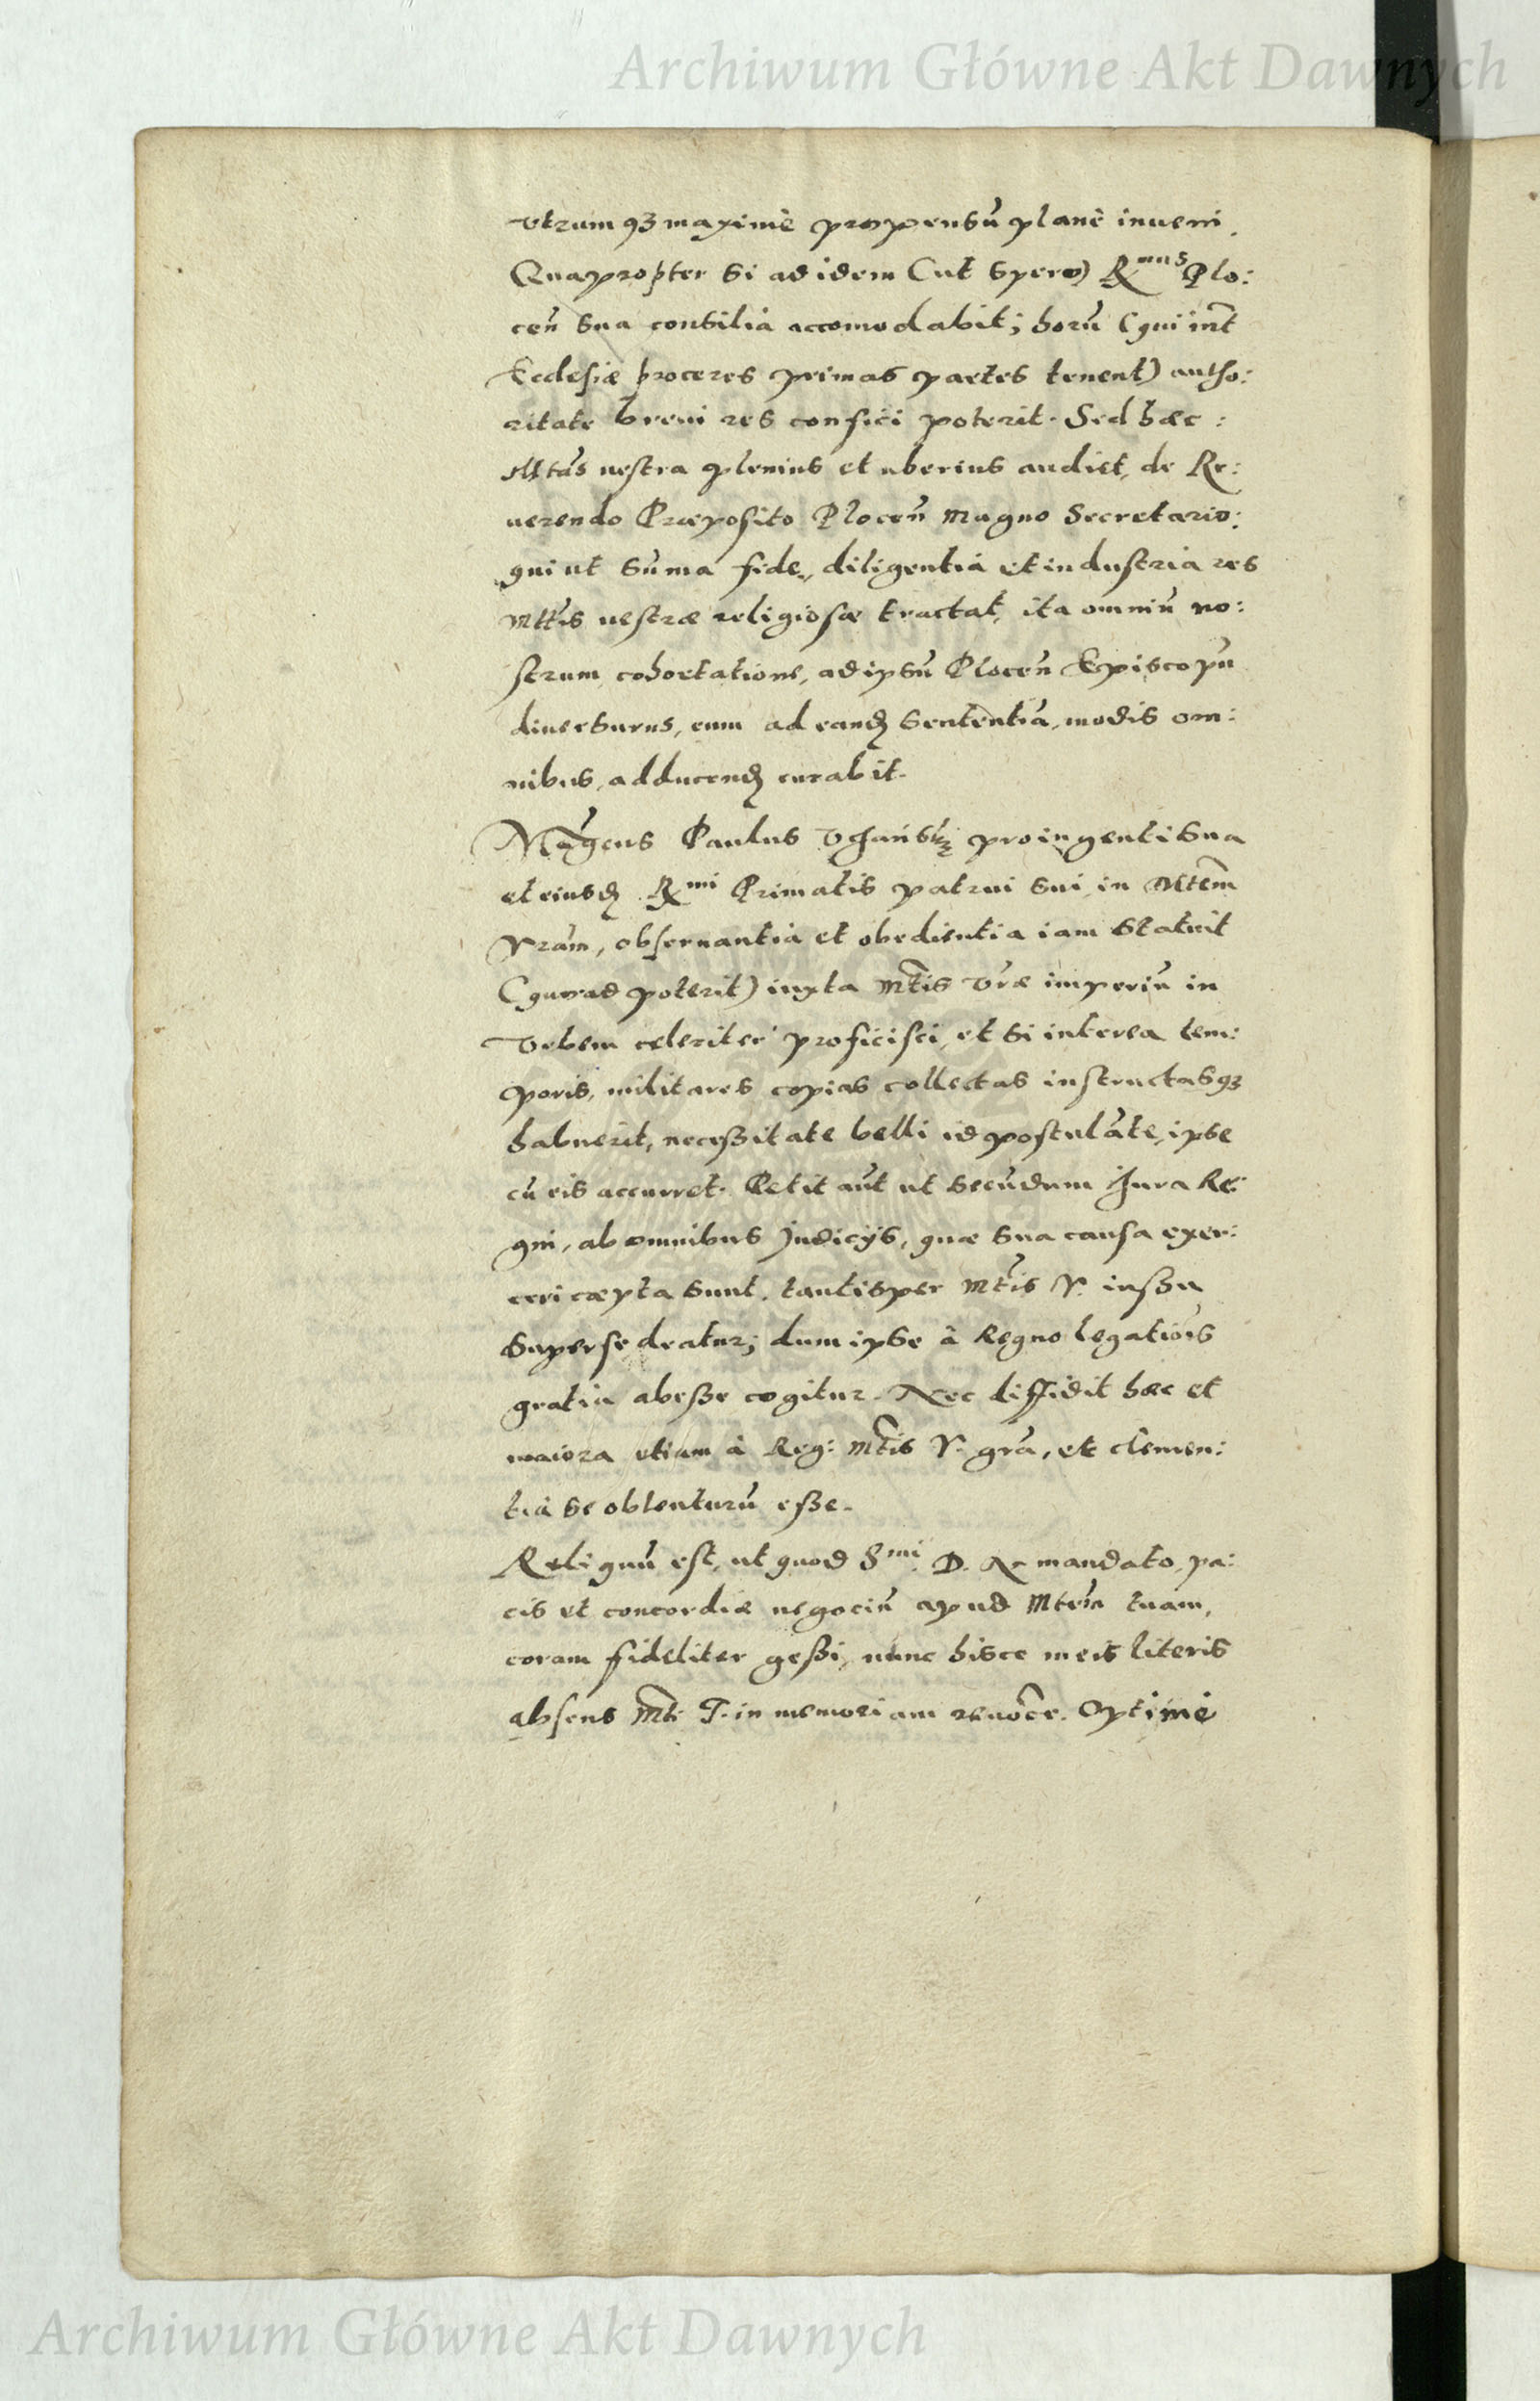 Archiwum Główne Akt Dawnych
vtrumq3 maximè propensũ planè inueni.
Quapropter si ad idem (ut spero) Rmus Plo:
ceñ sua consilia accomodabit; horũ (qui inr̃
Ecclesiæ proceres primas partes tenent) autho:
ritate breui res confici poterit. Sed hæc:
Mtas̃ uestra plenius et uberius audiet, de Re:
uerendo Præposito Ploceñ Magno Secretario:
qui ut sũma fide, diligentia et industria res
Mttis̃ uestræ religiosæ tractat, ita omniũ no:
strum cohortatione, ad ipsũ Ploceñ Episcopũ
diuersurus, eum ad eand sententiã, modis om:
nibus, adducend curabit.
Mag̃cus Paulus Vchańsky pro ingenti sua
et eiusd Rmi Primatis patrui sui, in Mtem̃
Vram̃, obseruantia et obedientia iam statuit
(quoad poterit) iuxta Mtis̃ Vr̃æ imperiũ in
Vrbem celeriter proficisci, et si interea tem:
poris, militares copias collectas instructasq3
habuerit, neceßitate belli id postulãte, ipse
cũ eis accurret. Petit aũt ut secũdum Jura Re:
gni, ab omnibus Judicijs, quæ sua causa exer:
ceri cæpta sunt, tantisper Mtis̃ V. iußu
supersedeatur; dum ipse à Regno legatiois̃
gratia abeße cogitur. Nec diffidit hæc et
maiora etiam à Reg: Mtis̃ V. grã, et clemen:
tia se obtenturũ eße.
Reliquũ est, ut quod Smi. D. N. mandato, pa:
cis et concordiæ negociũ apud Mtem̃ tuam,
coram fideliter geßi, nunc hisce meis literis
absens Mti T. in memoriam reuocẽ. Optimè
Archiwum Główne Akt Dawnych